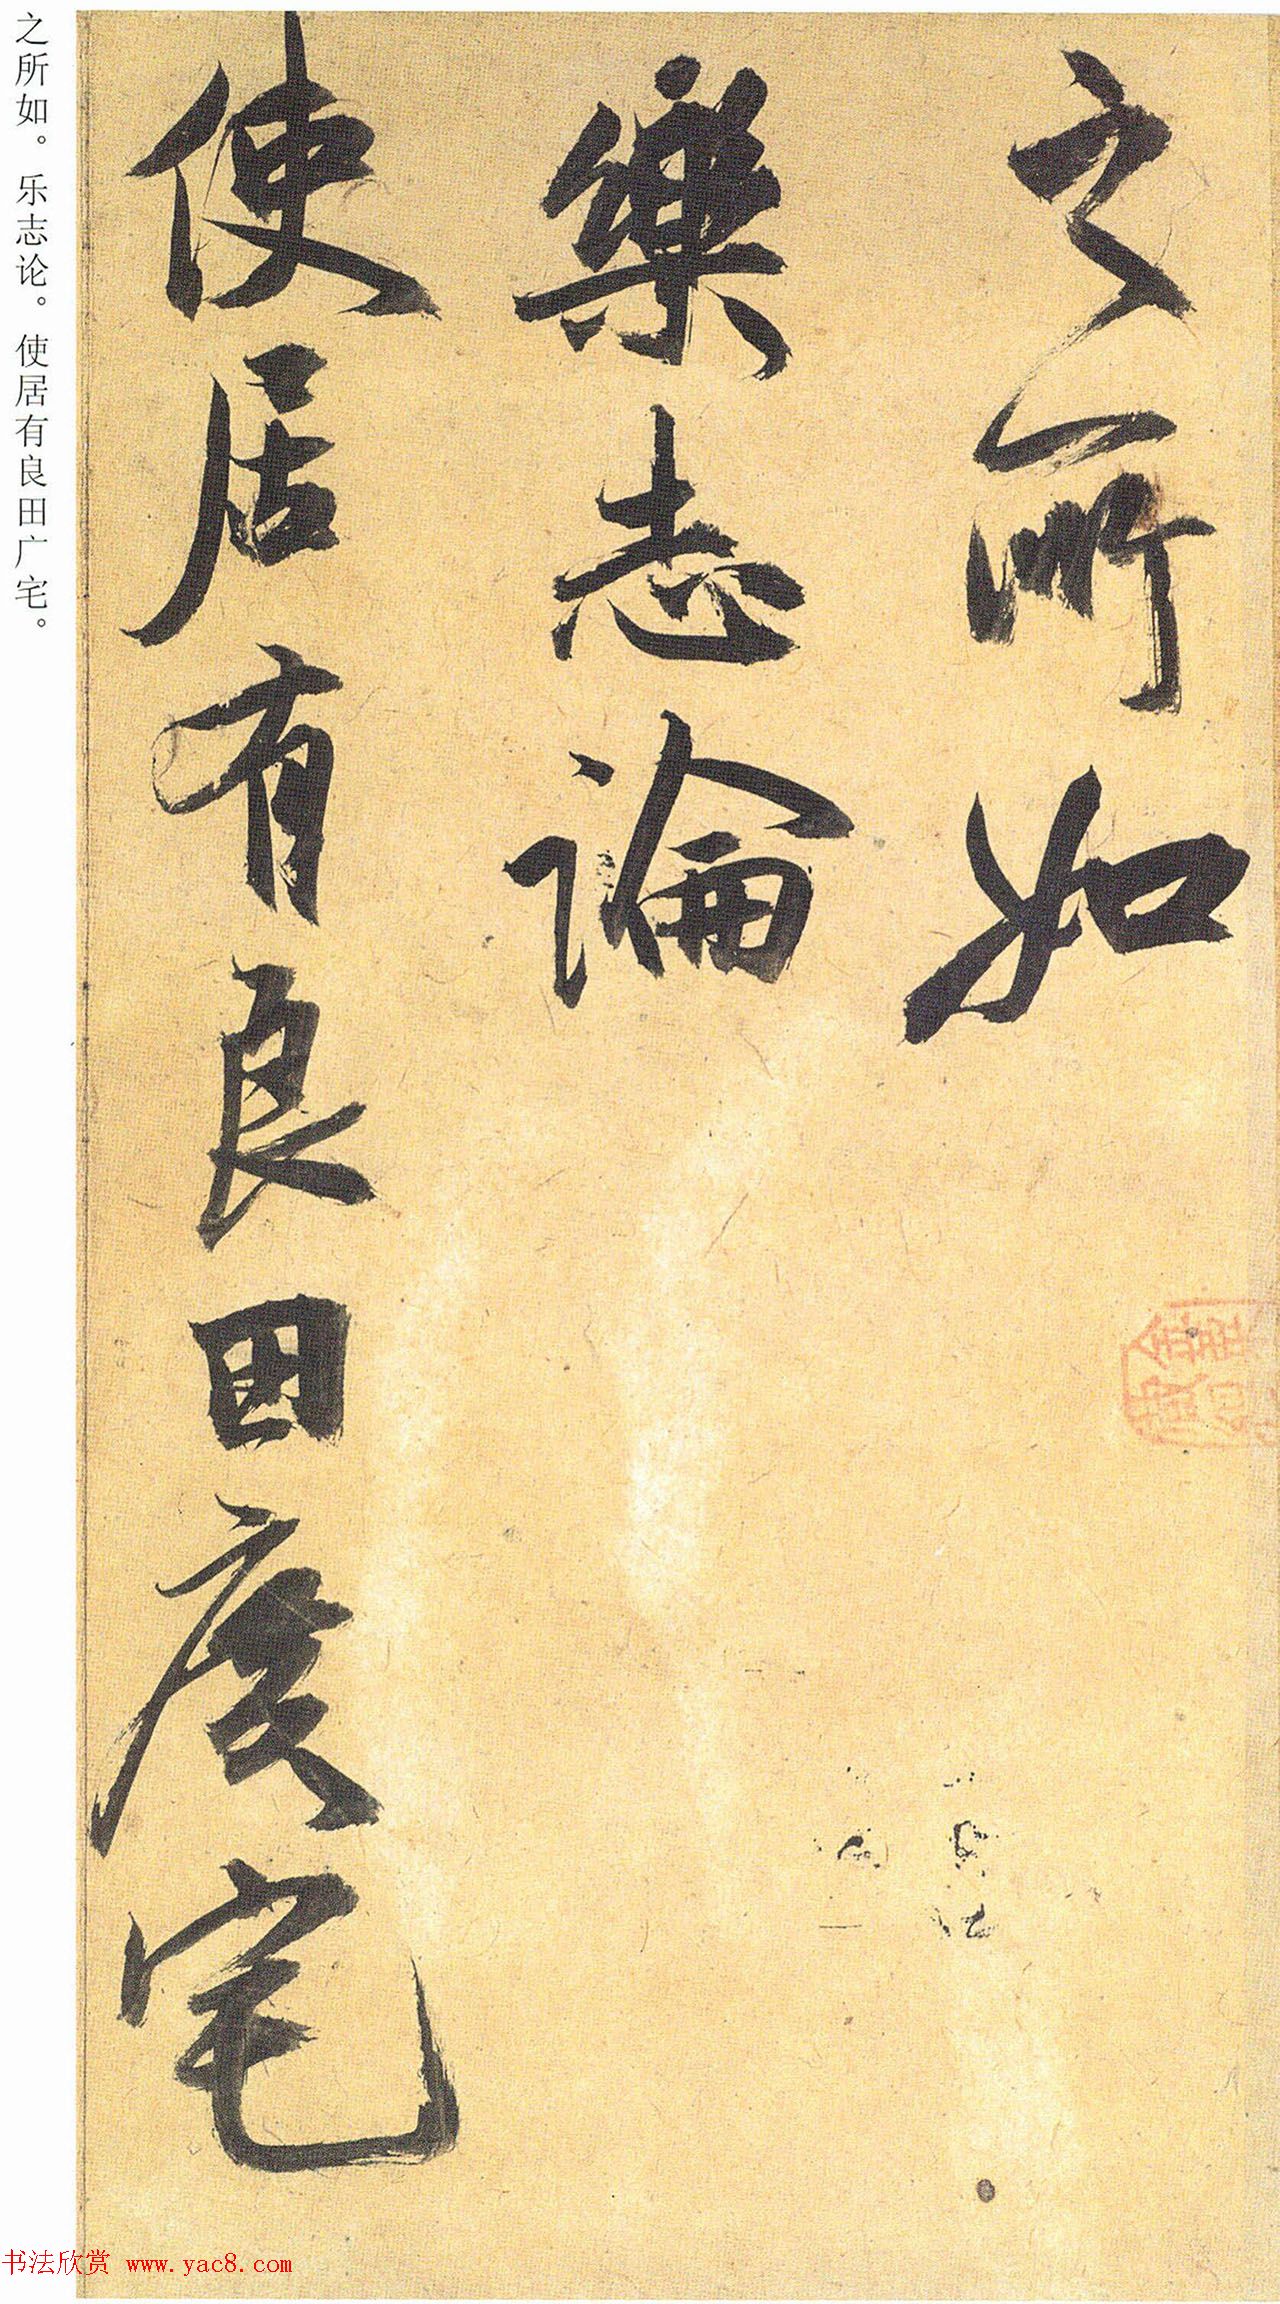 之所如
樂志論
使居有良田廣宅
之所如。乐志论。使居有良田广宅。
书法欣赏 www.yac8.com